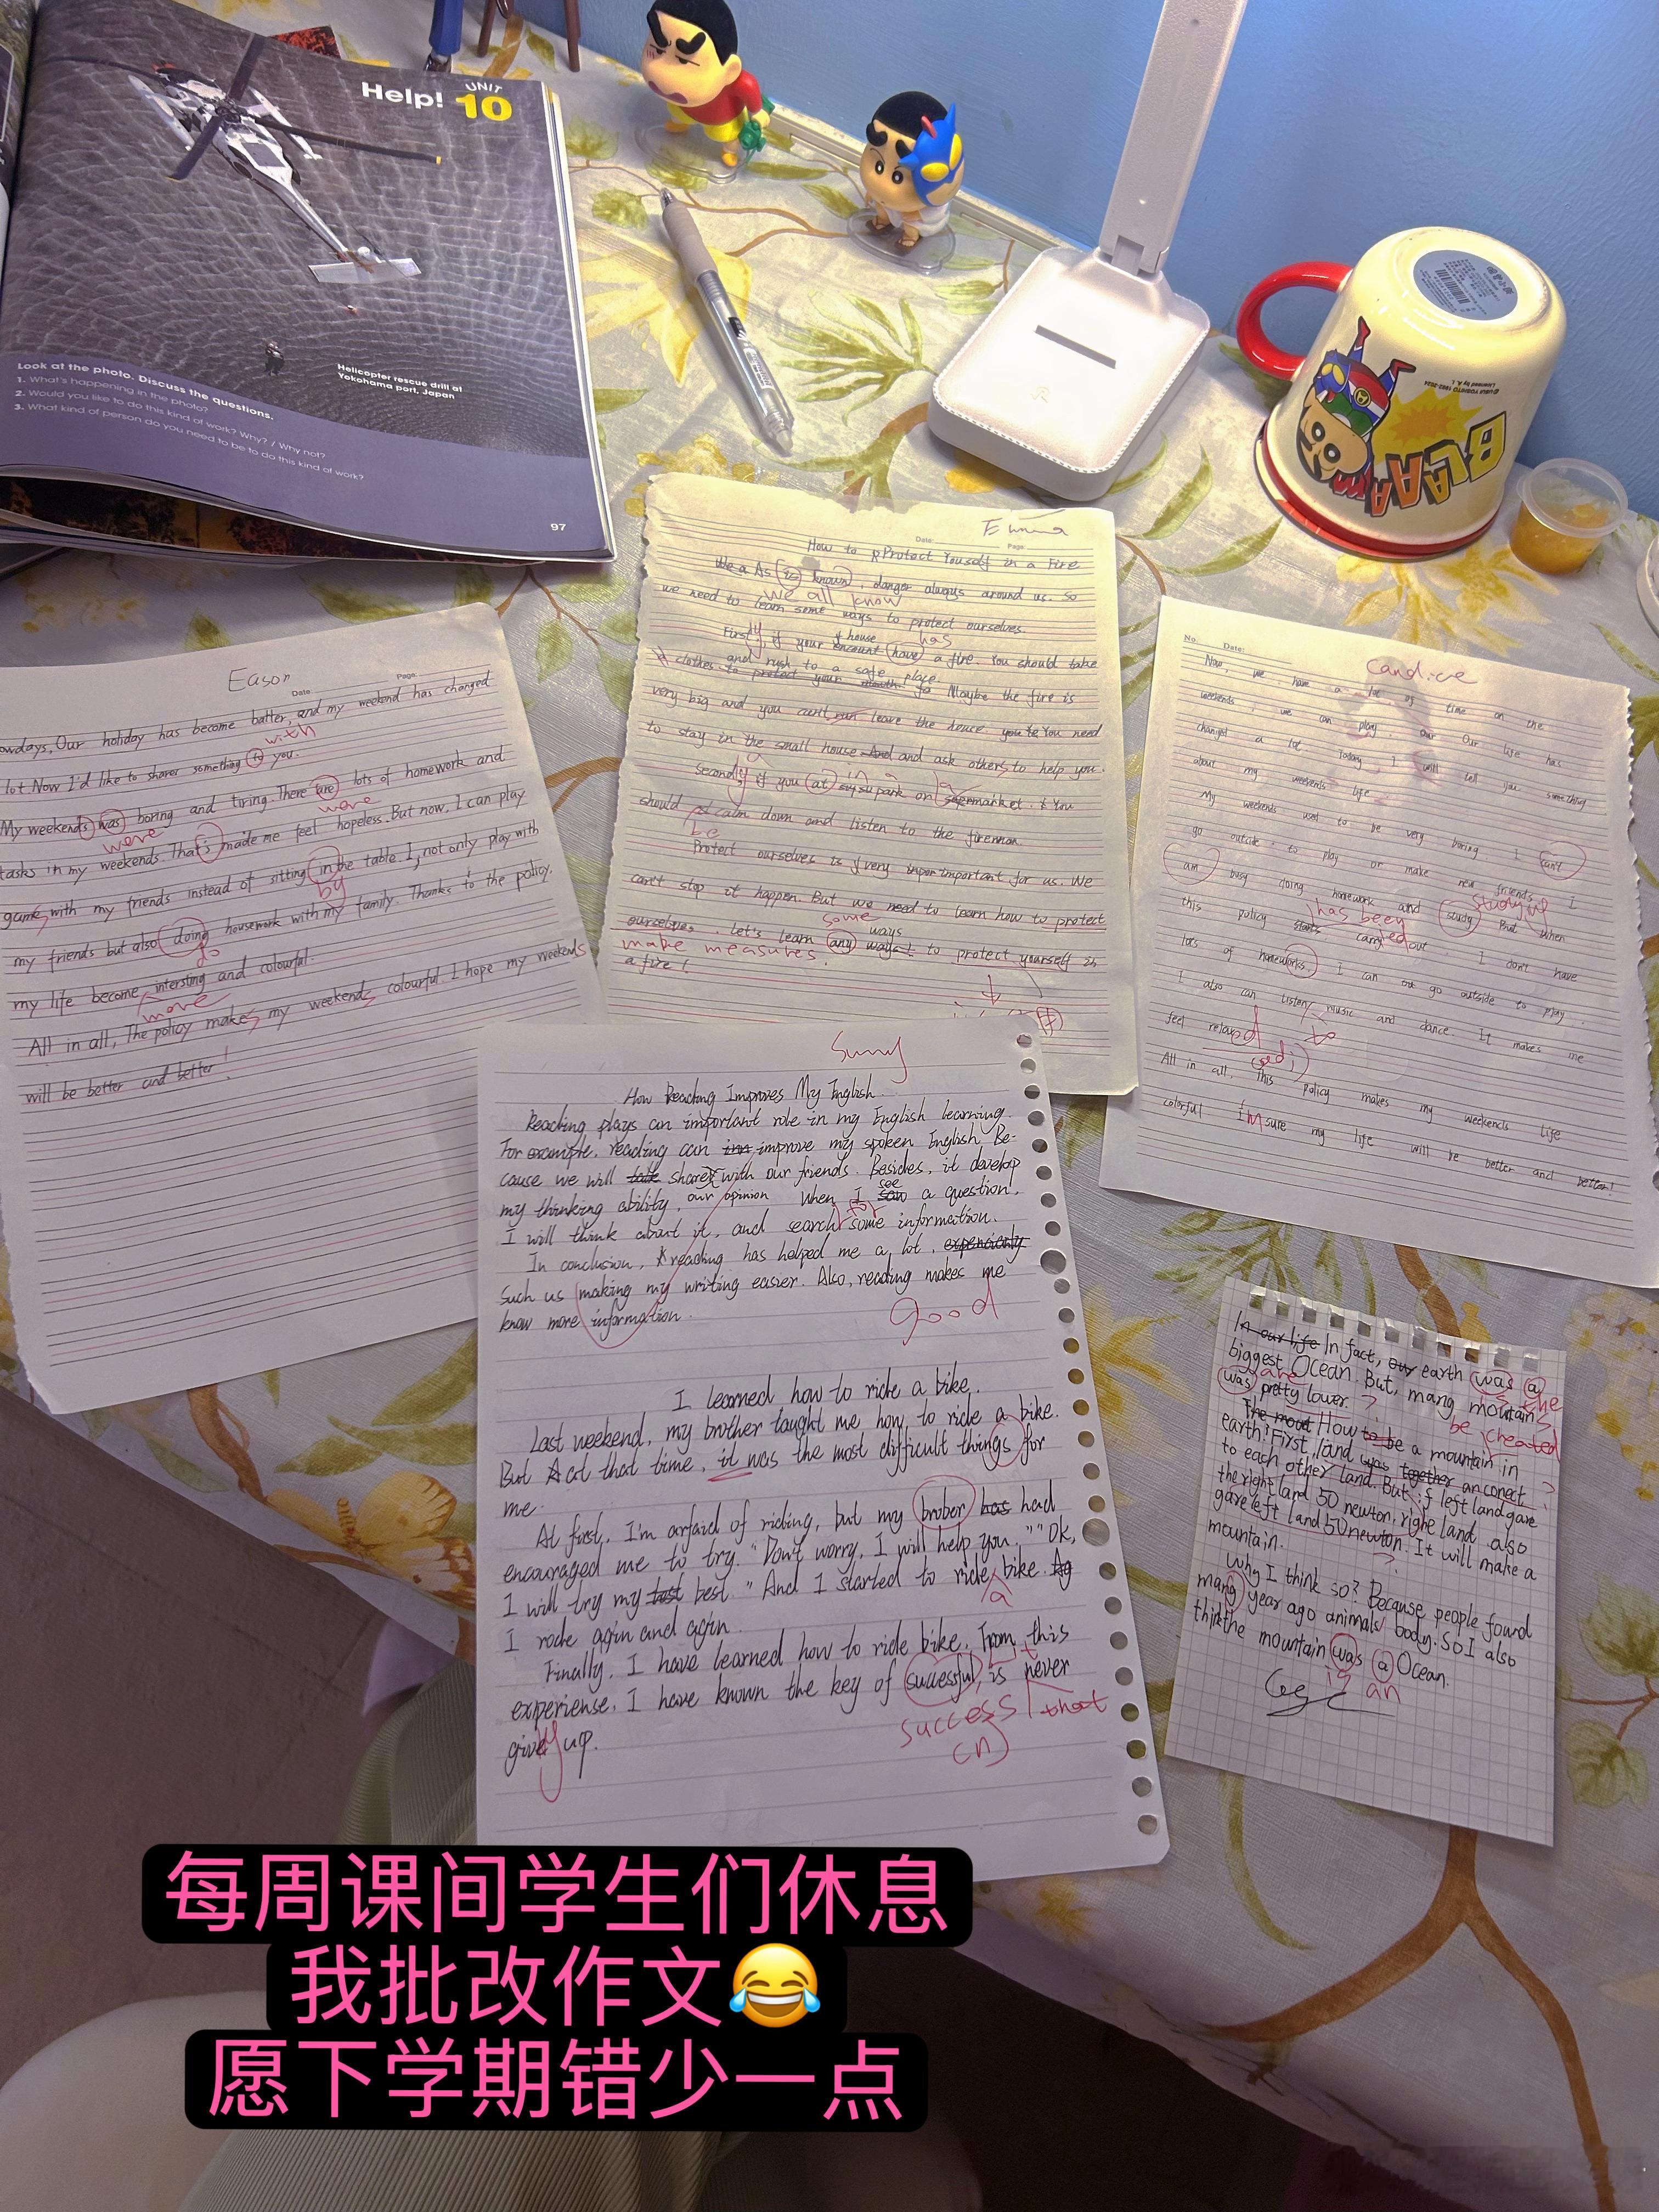 Help! UNIT 10
Look at the photo. Discuss the questions.
1. What's happening in the photo?
2. Would you like to do this kind of work? Why? / Why not?
3. What kind of person do you need to be to do this kind of work?
Helicopter rescue drill at
Yokohama port, Japan
97
BLAAA
Eason
Date: Page:
owdays, Our holiday has become batter, and my weekend has changed
lot Now I'd like to sharer something to you.
with
My weekends was boring and tiring. There are lots of homework and
were were
tasks in my weekends. That's made me feel hopeless. But now, I can play
games with my friends instead of sitting in the table. I not only play with
by
my friends but also doing housework with my family. Thanks to the policy.
do
my life become intersting and colourful.
more
All in all, The policy makes my weekends colourful. I hope my weekends
will be better and better!
Emma
Date: Page:
How to Protect Youself in a Fire
We a As is known, danger always around us. So
we all know
we need to learn some ways to protect ourselves.
Firstly if your house encount have a fire. You should take
has
clothes to protect your mouth go and rush to a safe place. Maybe the fire is
very big and you can't run leave the house. You need
to stay in the small house And and ask others to help you.
Secondly if you at park or supermarket. You
in a
should calm down and listen to the fireman.
be
Protect ourselves is very important for us. We
can't stop it happen. But we need to learn how to protect
ourselves. Let's learn any ways to protect yourself in
some ways
make measures.
a fire!
No. Date:
Candice
Now, we have a lot of time on the
weekends, we can play. Our Our life has
changed a lot. Today I will tell you something
about my weekends life.
My weekends used to be very boring I can't
go outside to play or make new friends I
am busy doing homework and study But When
studying
this policy starts carry out, I don't have
has been ied
lots of homeworks. I can go outside to play.
I also can listen music and dance. It makes me
to
feel relaxed
(adj)
All in all, This policy makes my weekends life
colorful I'm sure my life will be better and better!
Sunny
How Reading Improves My English
Reading plays an important role in my English learning.
For example, reading can im improve my spoken English Be-
cause we will talk share with our friends. Besides, it develop
our opinion
my thinking ability. When I saw see a question,
I will think about it, and search some information.
for
In conclusion, reading has helped me a lot.
Such us making my writing easier. Also, reading makes me
know more information.
good
I learned how to ride a bike.
Last weekend, my brother taught me how to ride a bike.
But at that time, it was the most difficult things for
me.
At first, I'm arfaid of riding, but my brober has had
encouraged me to try. "Don't worry, I will help you." "Ok,
I will try my best. "And I started to ride bike.
a
I rode agin and agin.
Finally, I have learned how to ride bike. From this
experiense, I have known the key of successful, is never
success that
(n)
give up.
In our life In fact, our earth was a
is the
biggest Ocean. But, many moutain
are
was pretty lower. ?
The mout How to be a mountain in
be cheated
earth? First, land was together an conect
to each other land. But if left land gave
the right land 50 newton, right land also
gave left land 50 newton. It will make a
mountain. ?
Why I think so? Because people found
many year ago animals body. So I also
think the mountain was a Ocean.
is an
每周课间学生们休息
我批改作文😂
愿下学期错少一点